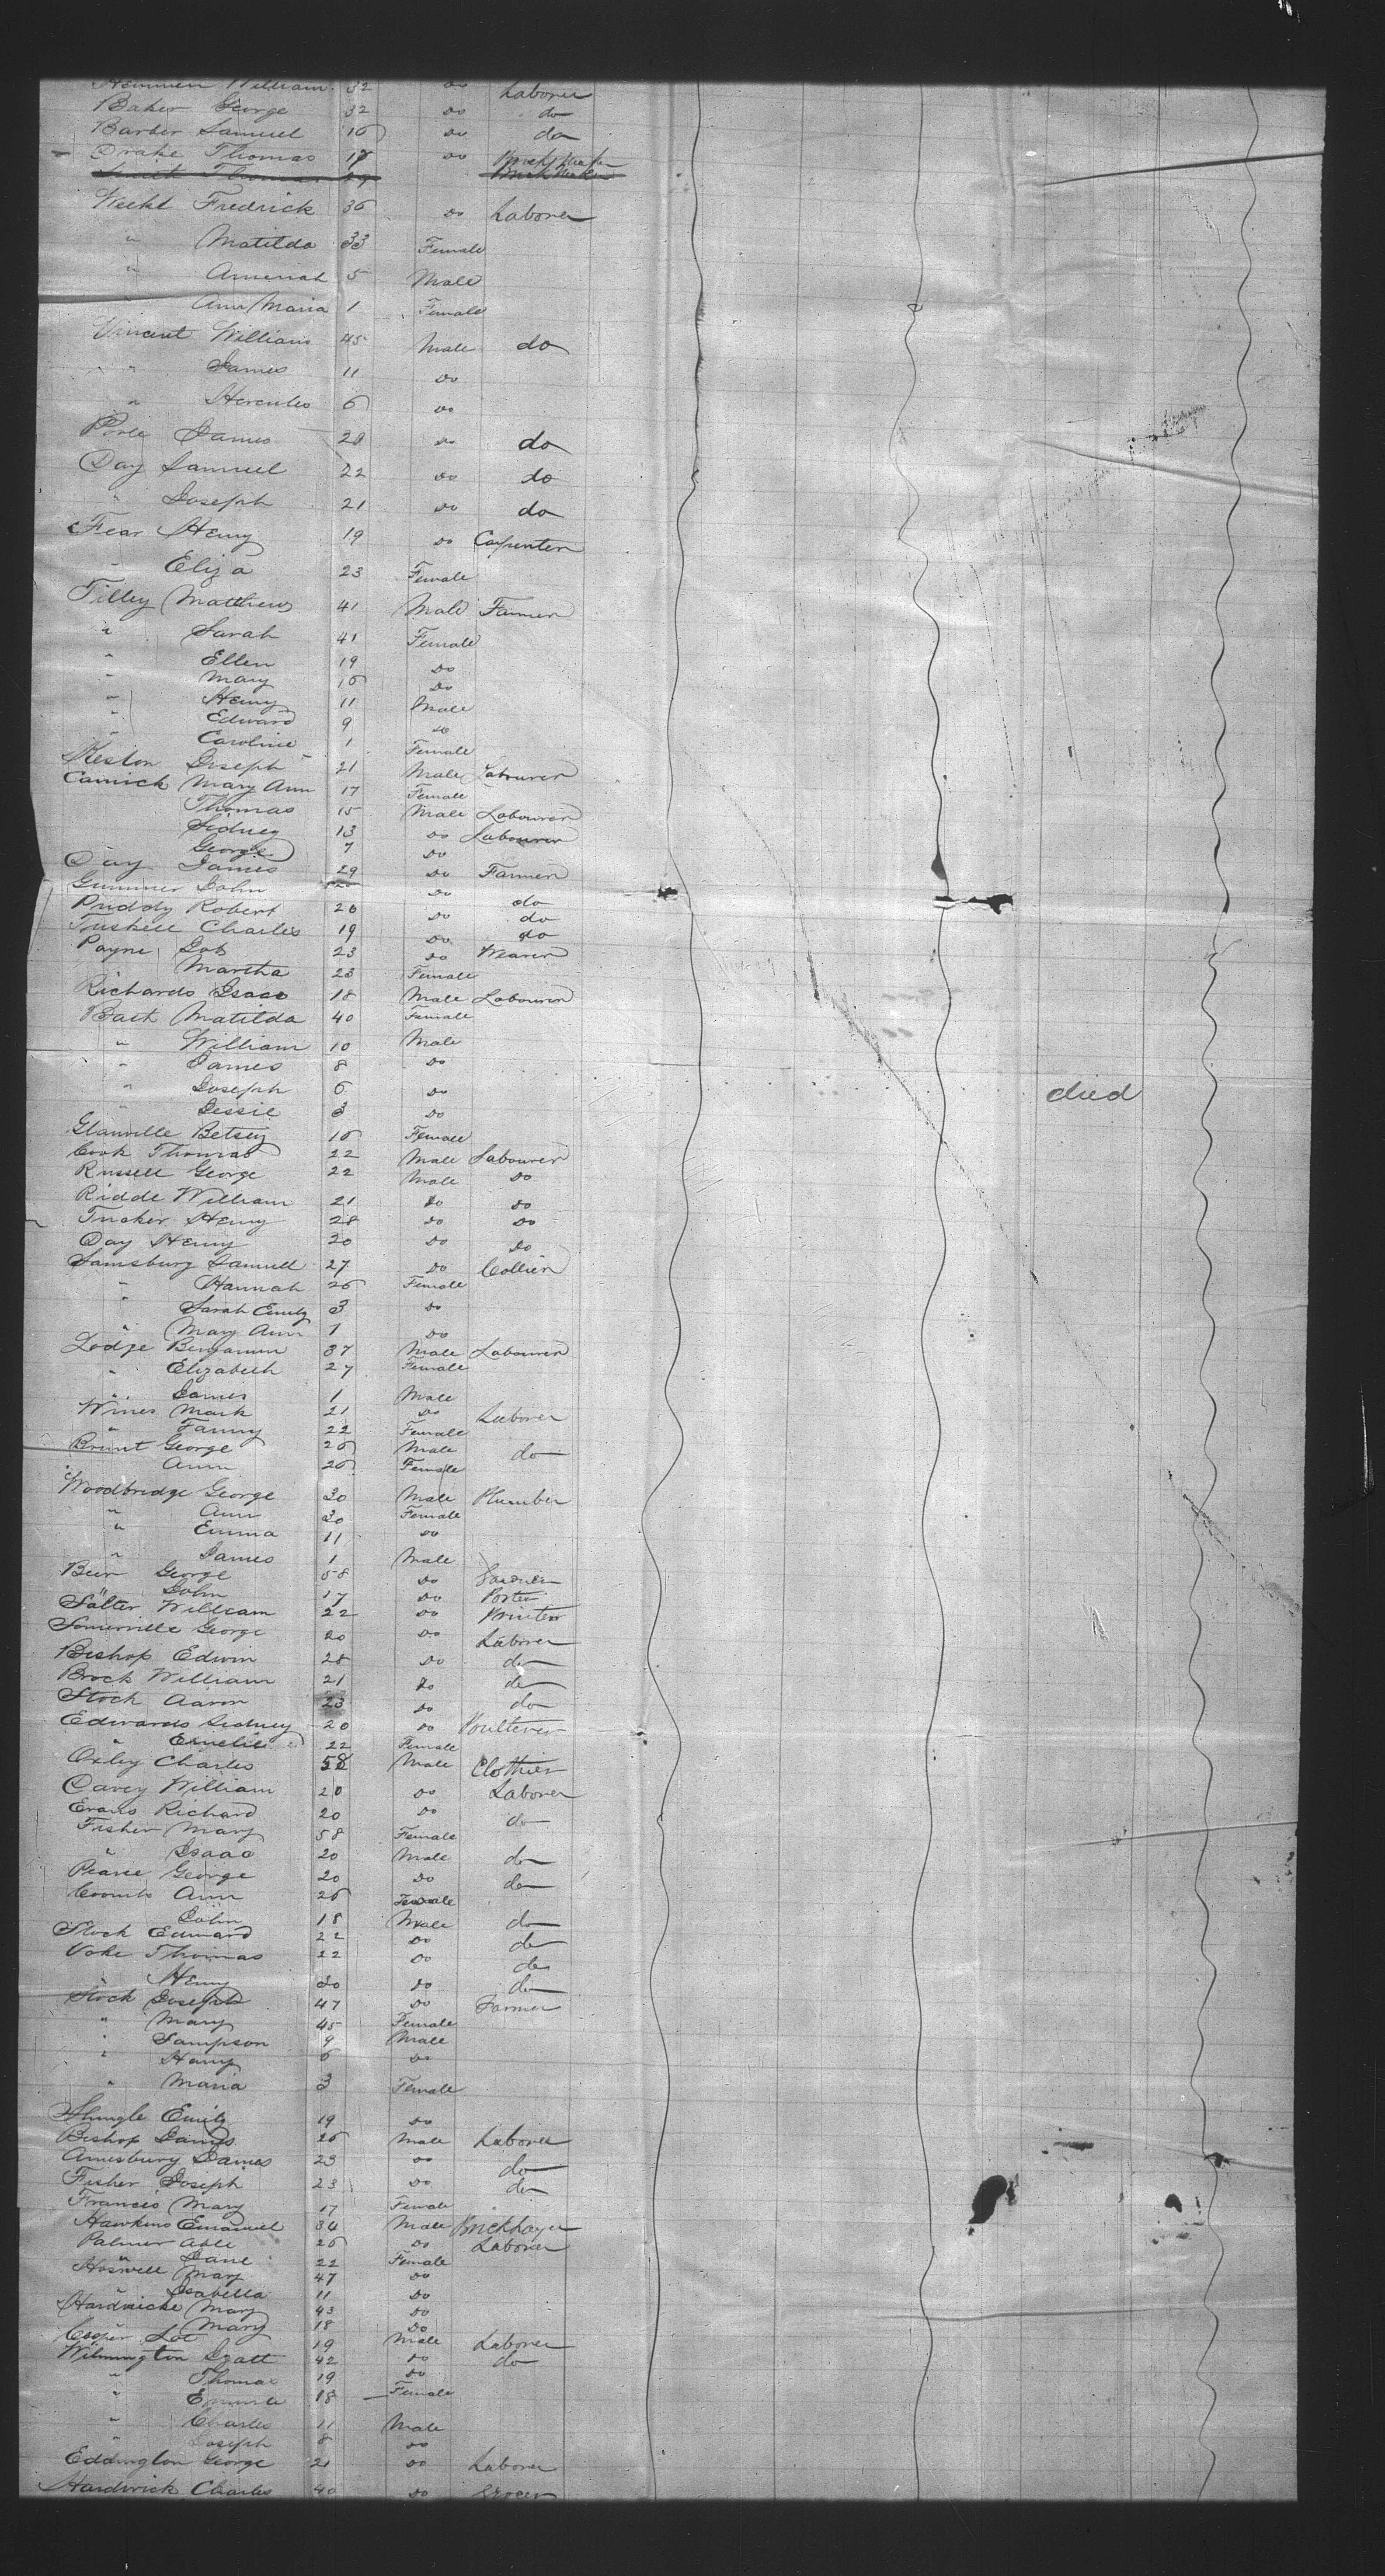 William 32 Do Laborer
Baker George 32 Do do
Barber Samuel 16 Do do
Drake Thomas 17 Do Brick Maker
Smith Thomas 29 Brick Maker
Fredrick 36 Do Laborer
" Matilda 33 Female
" 5 Male
" Ann Maria 1 Female
Vincent William 45 Male do
" James 11 Do
" Hercules 6 Do
James 20 Do do
Day Samuel 22 Do do
" Joseph 21 Do do
Fear Henry 19 Do Carpenter
" Eliza 23 Female
Tilley Matthew 41 Male Farmer
" Sarah 41 Female
" Ellen 19 Do
" Mary 16 Do
" Henry 11 Male
" Edward 9 Do
" Caroline 1 Female
Keston Joseph 21 Male Labourer
Camick Mary Ann 17 Female
Thomas 15 Male Labourer
Sidney 13 Do Labourer
George 7 Do
Day James 29 Do Farmer
Gummer John 20 Do do
Priddy Robert 20 Do do
Charles 19 Do do
Payne Job 23 Do Weaver
Martha 23 Female
Richards Isaac 18 Male Labourer
Bath Matilda 40 Female
" William 10 Male
" James 8 Do
" Joseph 6 Do died
" Jessie 3 Do
Glanville Betsey 16 Female
Cook Thomas 22 Male Labourer
Russell George 22 Male Do
Riddle William 21 Do Do
Tucker Henry 28 Do Do
Day Henry 20 Do Do
Sainsbury Samuel 27 Do Collier
" Hannah 26 Female
" Sarah Emily 3 Do
" Mary Ann 1 Do
Lodge Benjamin 37 Male Labourer
" Elizabeth 27 Female
" James 1 Male
Wines Mark 21 Do Laborer
" Fanny 22 Female
Brunt George 26 Male do
Ann 26 Female
Woodbridge George 30 Male Plumber
" Ann 30 Female
" Emma 11 Do
" James 1 Male
Beer George 58 Do
" John 17 Do Porter
Salter William 22 Do Printer
Somerville George 20 Do Laborer
Bishop Edwin 28 Do do
Brock William 21 Do do
Stock Aaron 23 Do do
Edwards Sidney 20 Do Poulterer
" Emelie 22 Female
Oxley Charles 58 Male Clothier
Davey William 20 Do Laborer
Evans Richard 20 Do do
Fisher Mary 58 Female
" Isaac 20 Male do
Pearce George 20 Do do
Coombs Ann 26 Female
John 18 Male do
Stock Edward 22 Do do
Voke Thomas 22 Do do
" Henry 20 Do do
Stock Joseph 47 Do Farmer
" Mary 45 Female
" Sampson 9 Male
" Henry 6 Do
" Maria 3 Female
Shingle Emily 19 Do
Bishop James 26 Male Laborer
Amesbury James 23 Do do
Fisher Joseph 23 Do do
Francis Mary 17 Female
Hawkins Emanuel 34 Male Bricklayer
Palmer Able 26 Do Laborer
" Jane 22 Female
Haswell Mary 47 Do
" Isabella 11 Do
Hardwicke Mary 43 Do
" Mary 18 Do
Cooper Lot 19 Male Laborer
Wilmington Izatt 42 Do do
" Thomas 19 Do
" Emma 18 Female
" Charles 11 Male
" Joseph 8 Do
Eddington George 21 Do Laborer
Hardwick Charles 40 Do Grocer